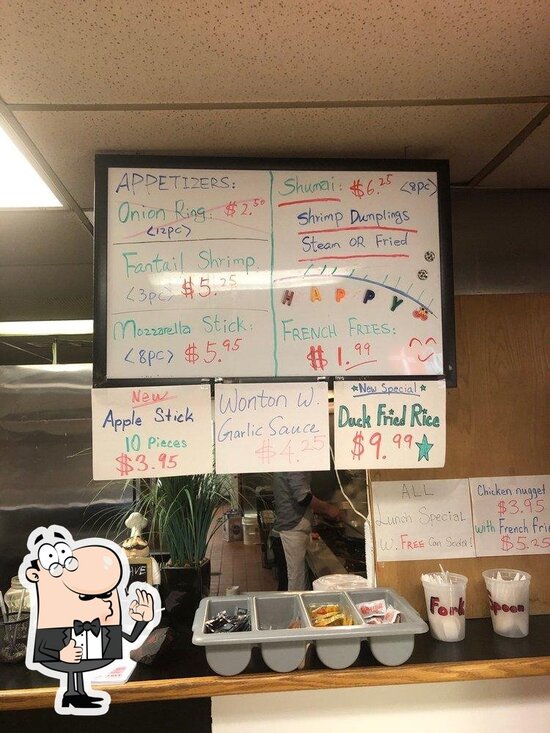 APPETIZERS:
Onion Ring: $2.50
<12pc>
Fantail Shrimp
<3pc> $5.25
Mozzarella Stick:
<8pc> $5.95
Shumai: $6.25 <8pc>
Shrimp Dumplings
Steam OR Fried
HAPPY
FRENCH FRIES:
$1.99
New
Apple Stick
10 Pieces
$3.95
Wonton W.
Garlic Sauce
$4.25
New Special
Duck Fried Rice
$9.99
ALL
Lunch Special
W. FREE Can Soda!
Chicken nugget
$3.95
with French Frie
$5.25
Fork
Spoon